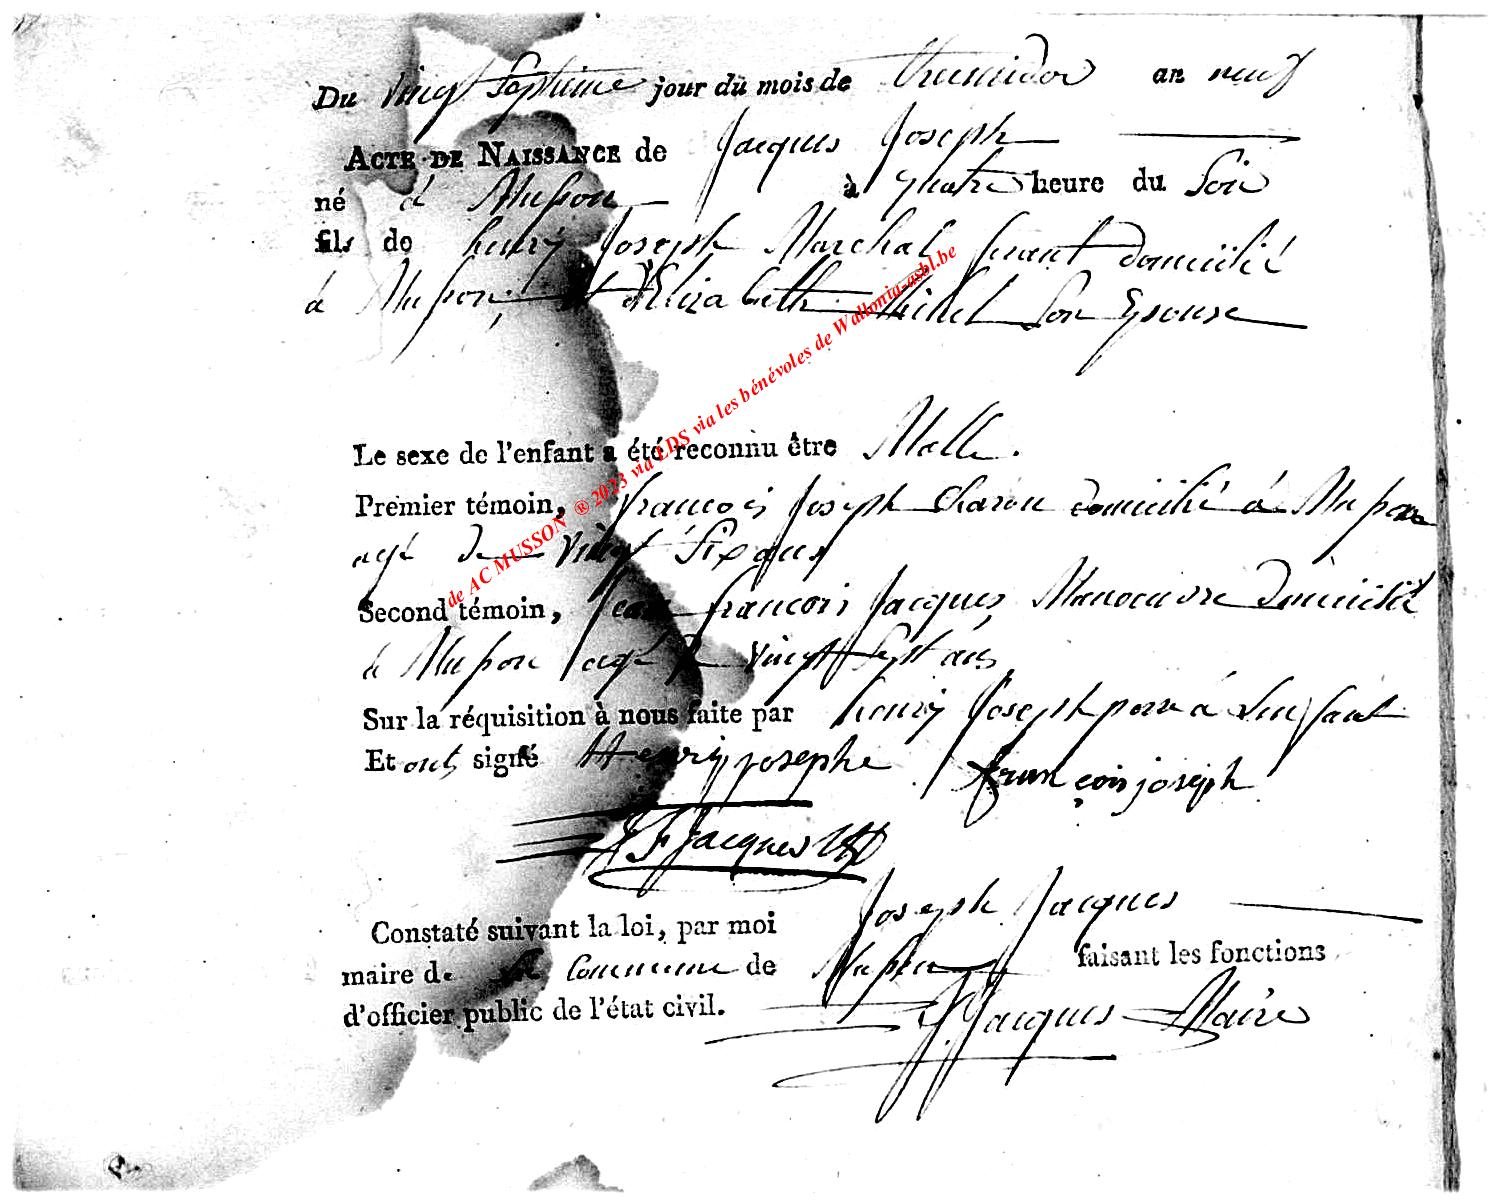 Du vingt Septieme jour du mois de thermidor an neuf
ACTE DE NAISSANCE de Jacques Joseph
né à Musson à quatre heure du Soir
fils de henry Joseph Marchal domicilié
à Musson et d'Elizabeth Son Epouse
Le sexe de l'enfant a été reconnu être Malle.
Premier témoin, francois Joseph domicilié à Musson
agé de vingt Six ans
Second témoin, Jean francois Jacques Manoeuvre Domicilié
à Musson agé de vingt Sept ans
Sur la réquisition à nous faite par henry Joseph pere à Lenfant
Et ont signé Henry josephe françois joseph
JF Jacques
Constaté suivant la loi, par moi Joseph Jacques
maire de la Commune de Musson faisant les fonctions
d'officier public de l'état civil. J. Jacques Maire
de AC MUSSON ® 2023 via EDS via les bénévoles de Wallonia-asbl.be